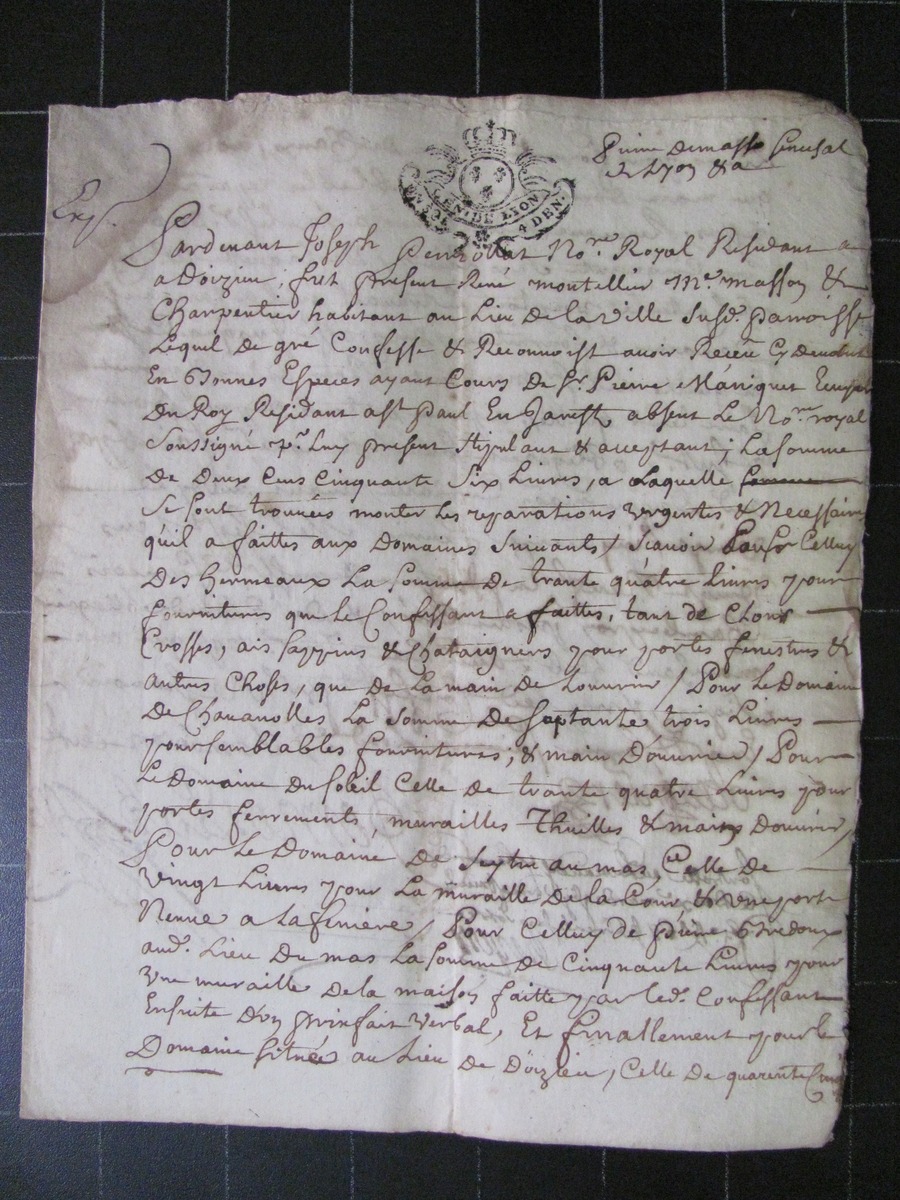 GEN. DE LYON
4 DEN.
a Lyon &a
Exp.
Pardevant Joseph Perrollat No.re Royal Residant a
a Doizieu, fut present René montellier M.e masson &
Charpentier habitant au Lieu de la ville susd. parroisse
Lequel de gré Confesse & Reconnoist avoir Receu Cy devant
En bonnes Especes ayant Cours de Sr. Pierre Maniquet Ecuyer
Du Roy Residant a St. paul En Jarest, absent Le No.re royal
Soussigné p.r Luy present stipulant & acceptant; La somme
De Deux Cens Cinquante Six Livres, a Laquelle somme
Se sont trouvées monter Les reparations urgentes & Necessaires
qu'il a faittes aux Domaines Suivants / Scavoir Celluy
Des hermeaux La somme De trante quatre Livres pour
fournitures que le Confessant a faittes, tant de Clous
Crosses, ais sappins & Chataigners pour portes fenestres &
autres Choses, que de La main de Louvrier / Pour Le Domaine
De Chavanolles La somme De Septante trois Livres
pour semblables fournitures, & main D'ouvrier / Pour
Le Domaine Du Soleil Celle De trante quatre Livres pour
portes ferrements, murailles Thuilles & main Douvrier,
Pour Le Domaine De au mas, Celle De
Vingt Livres pour La muraille De la Cour & une porte
Neuve a La feniere / Pour Celluy de piere
aud. Lieu Du mas La somme De Cinquante Livres pour
Une muraille De la maison faitte par led. Confessant
Ensuite d'un prixfait verbal, Et finallement pour le
Domaine Situé au Lieu De Doizieu, Celle De quarente Cinq